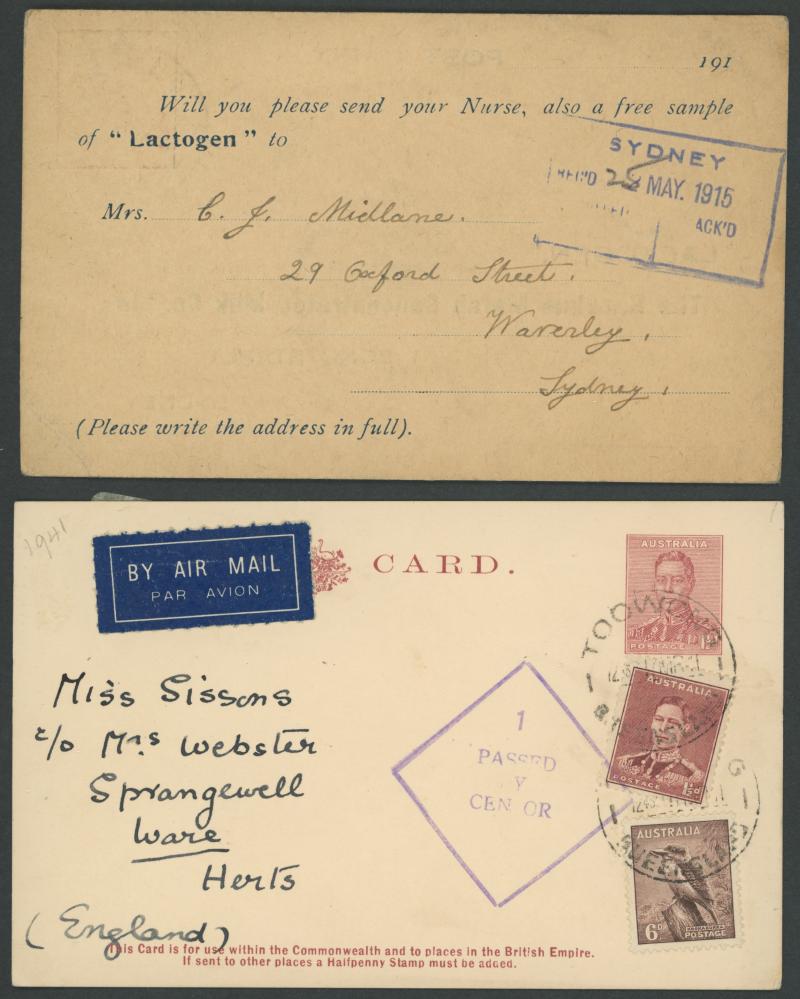 191
Will you please send your Nurse, also a free sample
of "Lactogen" to
SYDNEY
REC'D 28 MAY. 1915
ACK'D
Mrs. C. J. Midlane.
29 Oxford Street.
Waverley,
Sydney,
(Please write the address in full).
1941
BY AIR MAIL
PAR AVION
CARD.
AUSTRALIA
POSTAGE
TOOWONG
QUEENSLAND
AUSTRALIA
POSTAGE 1½d
QUEENSLAND
AUSTRALIA
6D
KOOKABURRA
POSTAGE
1
PASSED
Y
CEN OR
Miss Sissons
c/o Mrs Webster
Sprangewell
Ware
Herts
(England)
This Card is for use within the Commonwealth and to places in the British Empire.
If sent to other places a Halfpenny Stamp must be added.